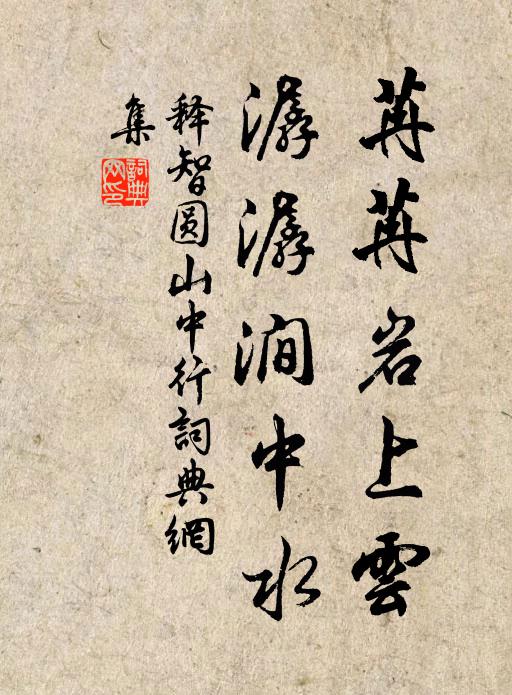 苒苒岩上雲
潺潺澗中水
释智圆山中行詞典網
集
詞典
網印